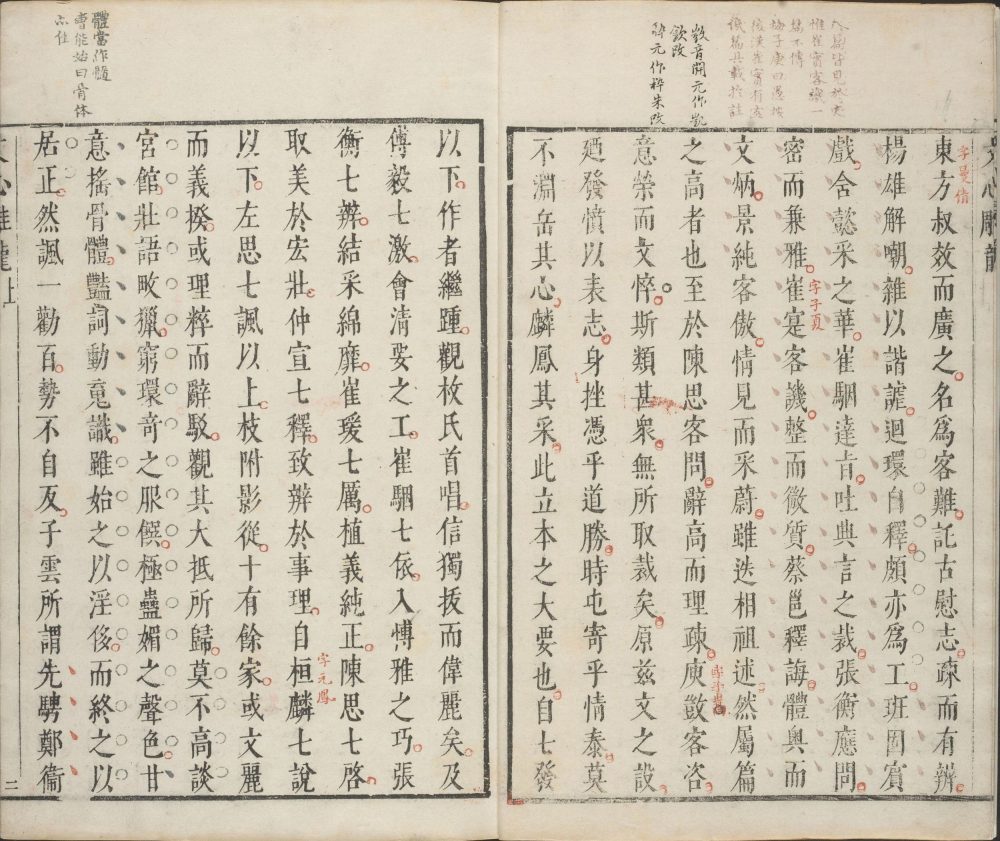 文心雕龍
東方叔效而廣之名爲客難託古慰志疎而有辨
楊雄解嘲雜以諧謔迴環自釋頗亦爲工班固賓
戲含懿采之華崔駰達旨吐典言之裁張衡應問
密而兼雅崔寔客譏整而微質蔡邕釋誨體奥而
文炳景純客傲情見而采蔚雖迭相祖述然屬篇
之高者也至於陳思客問辭高而理疎庾敳客咨
意榮而文悴斯類甚衆無所取裁矣原兹文之設
廼發憤以表志身挫憑乎道勝時屯寄乎情泰莫
不淵岳其心麟鳳其采此立本之大要也自七發
字曼倩
字子夏
字子嵩
敳音開元作凱
欽改
悴元作粹朱改
以下作者繼踵觀枚氏首唱信獨拔而偉麗矣及
傅毅七激會清要之工崔駰七依入博雅之巧張
衡七辨結采綿靡崔瑗七厲植義純正陳思七啓
取美於宏壯仲宣七釋致辨於事理自桓麟七說
以下左思七諷以上枝附影從十有餘家或文麗
而義揆或理粹而辭駁觀其大抵所歸莫不高談
宮館壯語畋獵窮瓌奇之服饌極蠱媚之聲色甘
意搖骨體豔詞動䰟識雖始之以淫侈而終之以
居正然諷一勸百勢不自反子雲所謂先騁鄭衞
字元鳳
體當作髓
曹能始曰骨体
亦佳
文心雕龍上
二